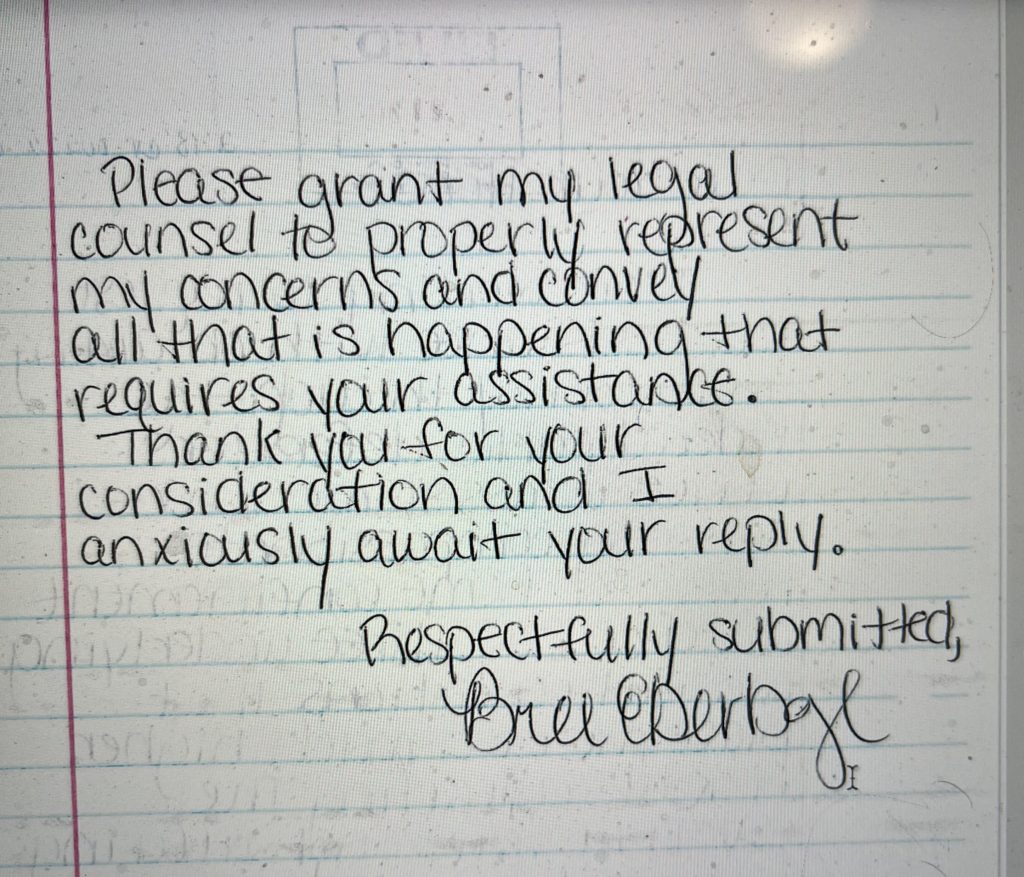 Please grant my legal
counsel to properly represent
my concerns and convey
all that is happening that
requires your assistance.
Thank you for your
consideration and I
anxiously await your reply.
Respectfully submitted,
Bree Eberbaugh